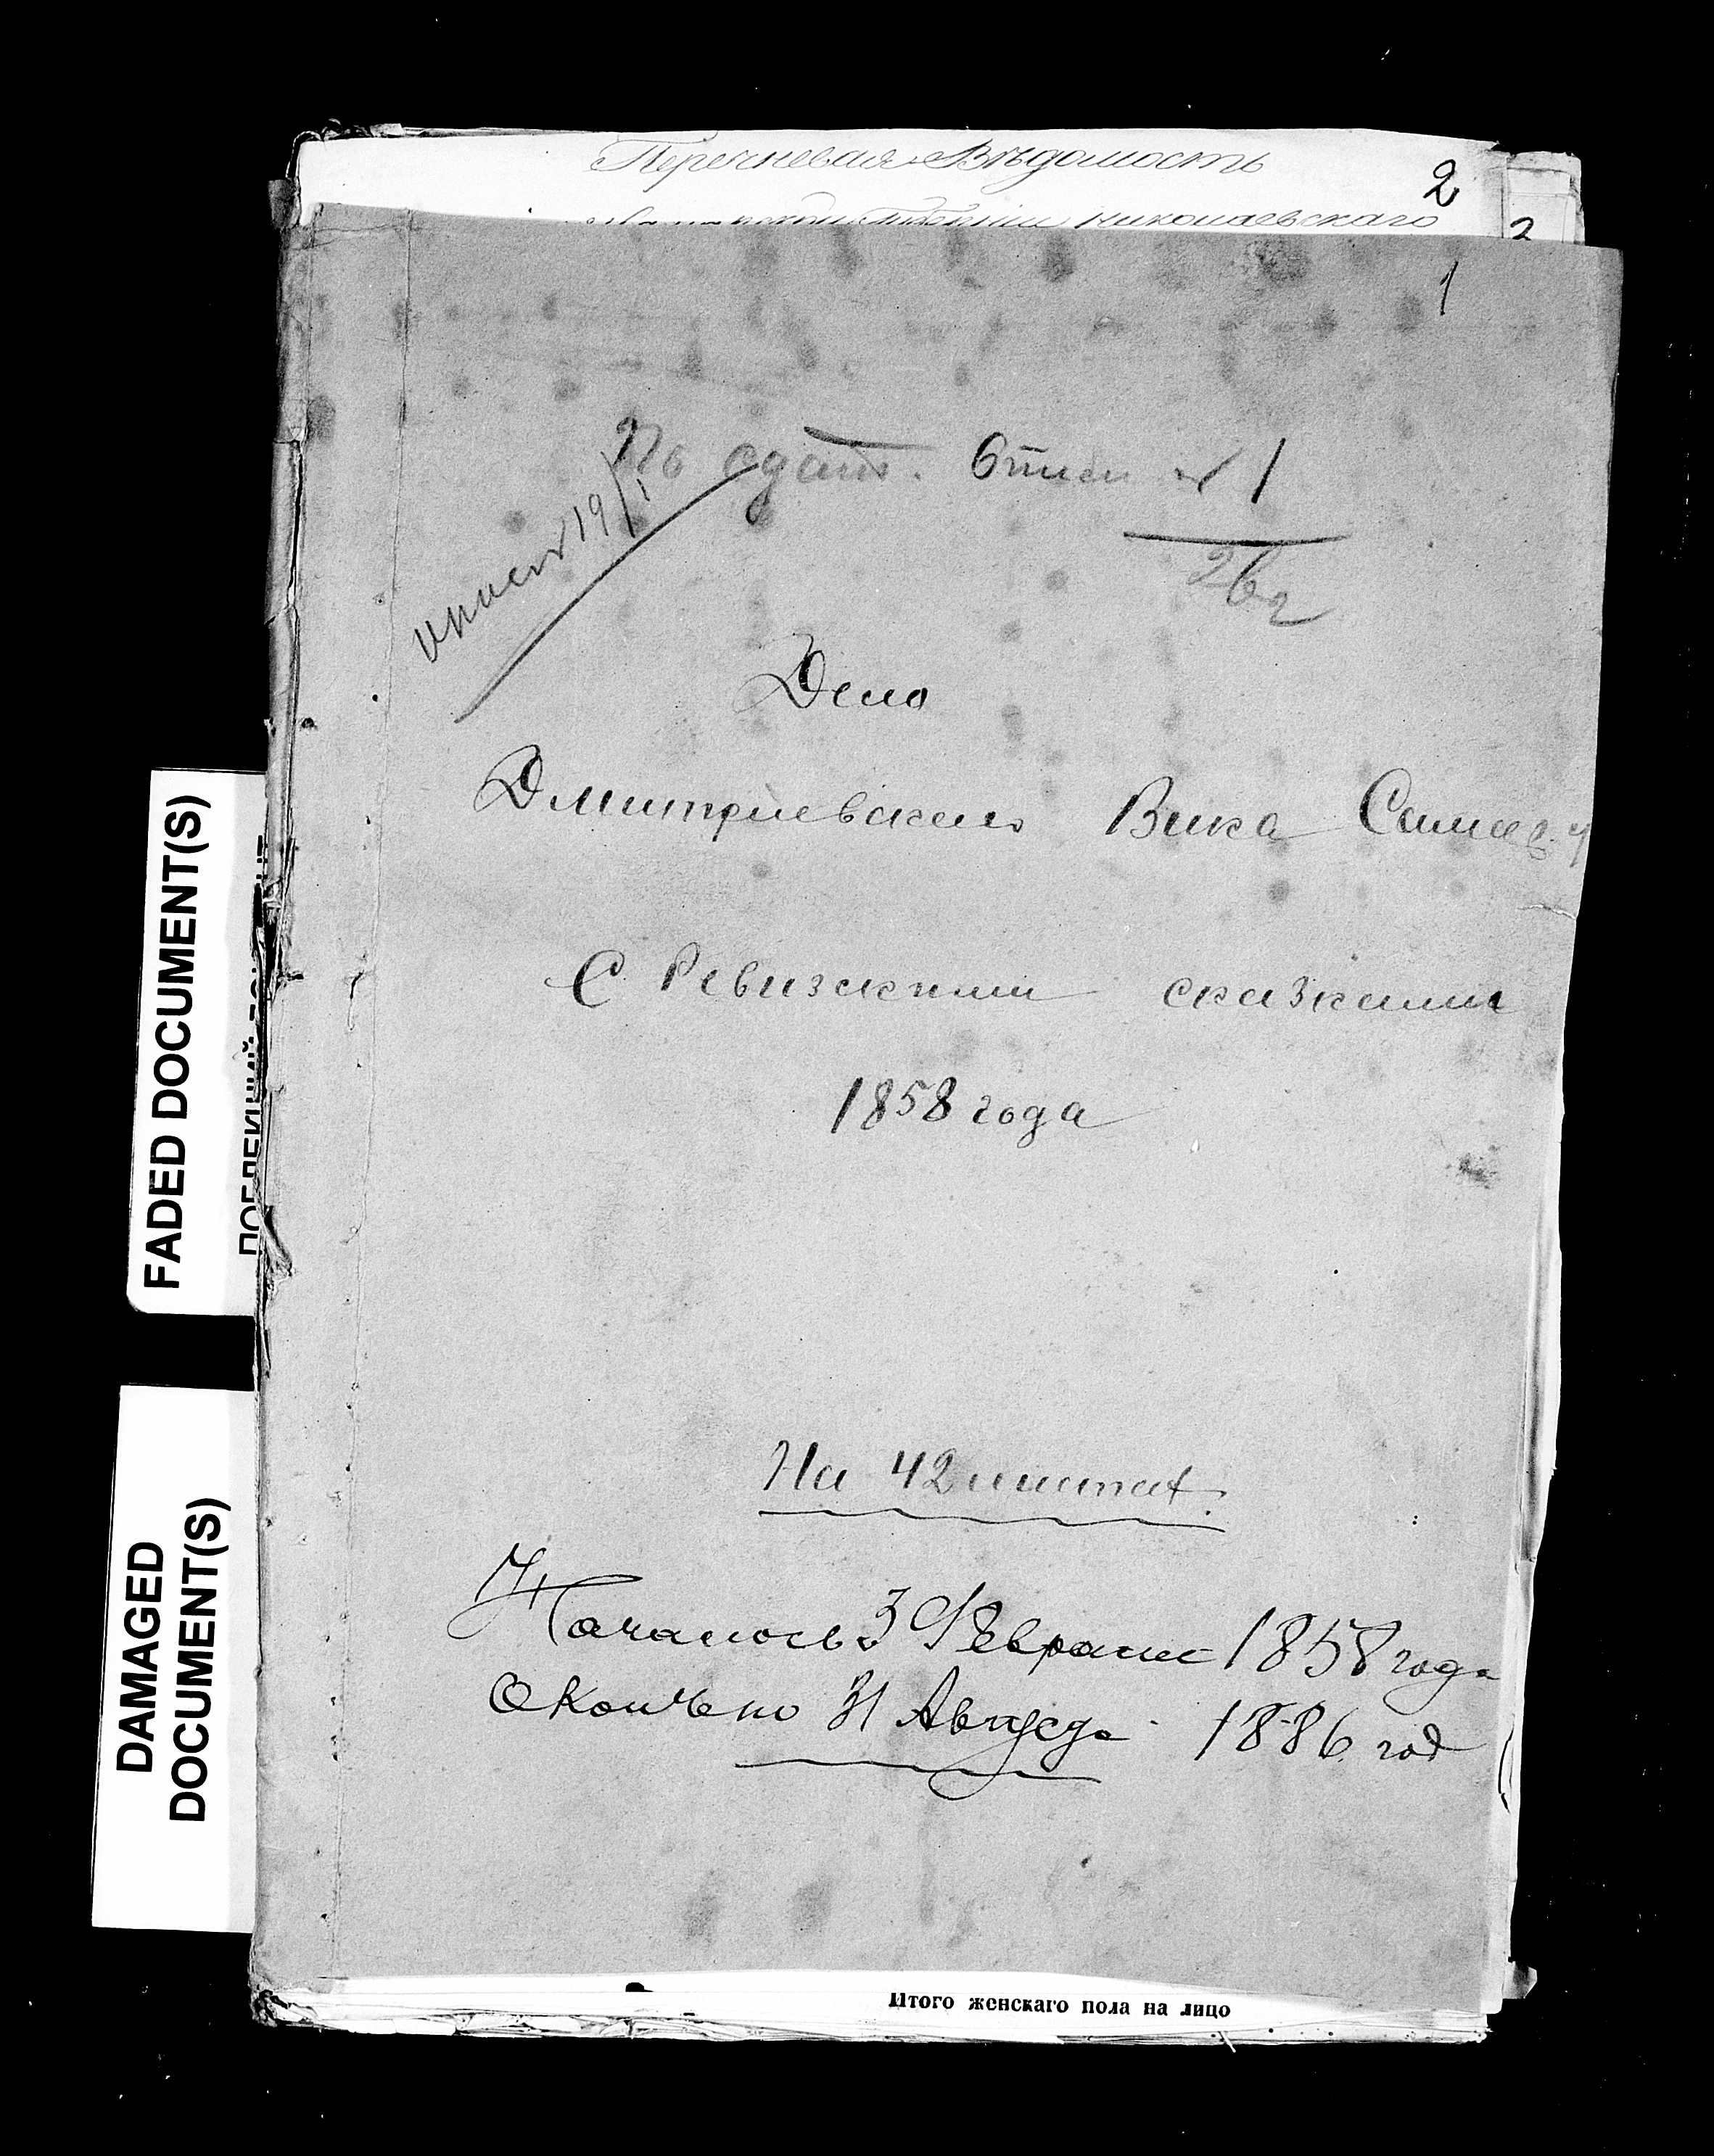 Перечневая Вѣдомость
2
Николаевскаго
2
1
По сдат. Описи № 1
262
Описи 19
Дело
Дмитриевскаго Вика Самар. у
С Ревизскими сказками
1858 года
На 42 листах.
Началось 3 Февраля 1858 года
Окончено 31 Августа 1886 год
Итого женскаго пола на лицо
FADED DOCUMENT(S)
DAMAGED
DOCUMENT(S)